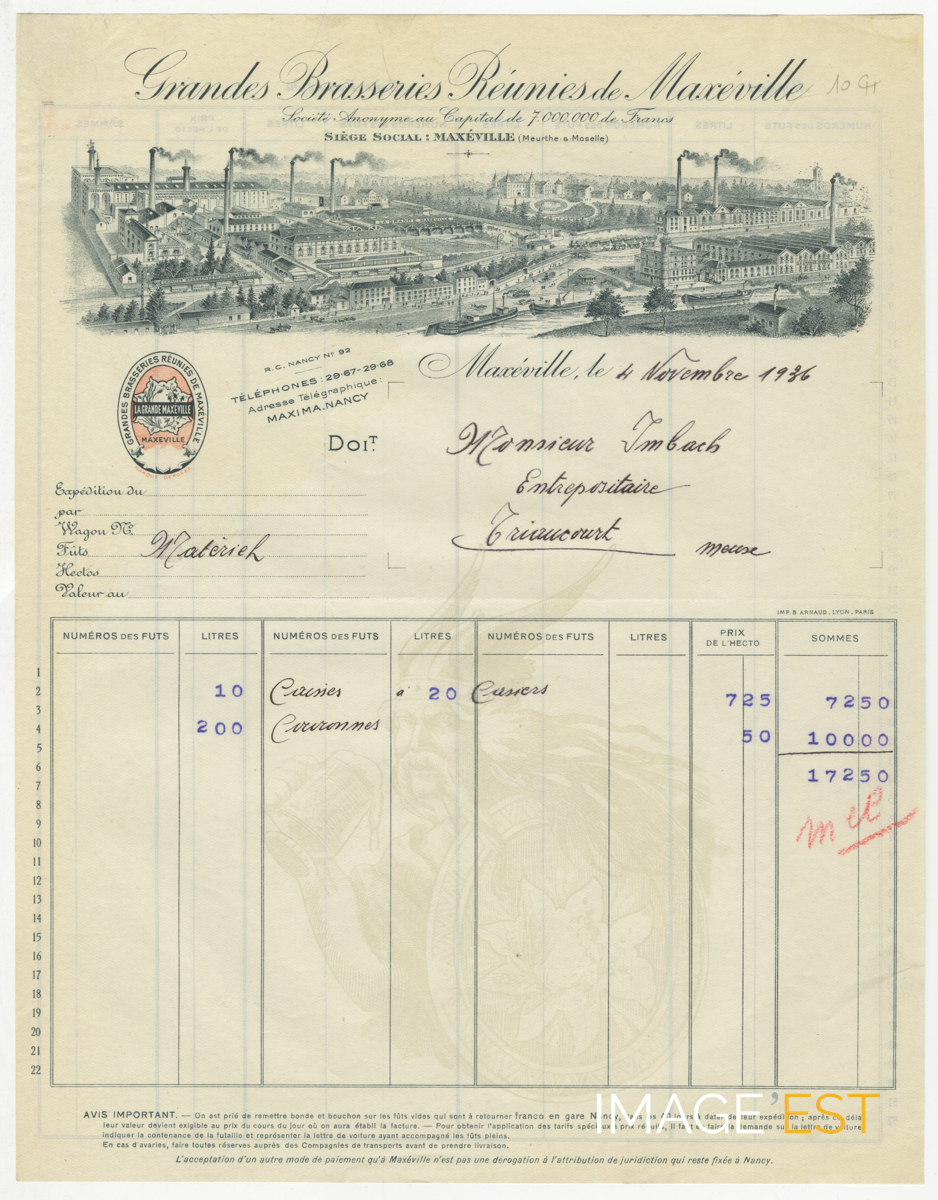 Grandes Brasseries Réunies de Maxéville
Société Anonyme au Capital de 7.000.000 de Francs
SIÈGE SOCIAL : MAXÉVILLE (Meurthe & Moselle)
GRANDES BRASSERIES RÉUNIES DE MAXÉVILLE
LA GRANDE MAXÉVILLE
MAXÉVILLE
R.C. NANCY Nº 92
TÉLÉPHONES : 29-67-29-68
Adresse Télégraphique :
MAXIMA.NANCY
Maxéville, le 4 Novembre 1936
DOIT.
Monsieur Imbach
Entrepositaire
Triaucourt
meuse
Expédition du
par
Wagon Nº
Fûts Matériel
Hectos
Valeur au
IMP. B. ARNAUD, LYON - PARIS
NUMÉROS DES FUTS LITRES NUMÉROS DES FUTS LITRES NUMÉROS DES FUTS LITRES PRIX DE L'HECTO SOMMES
1
2 10 Caisses à 20 Casiers 725 7250
3
4 200 Couronnes 50 10000
5
6 17250
7
8
9
10
11
12
13
14
15
16
17
18
19
20
21
22
AVIS IMPORTANT. — On est prié de remettre bonde et bouchon sur les fûts vides qui sont à retourner franco en gare Nancy, dans les 40 jours à dater de leur expédition ; après ce délai
leur valeur devient exigible au prix du cours du jour où on aura établi la facture. — Pour obtenir l'application des tarifs spéciaux à prix réduit, il faut en faire la demande sur la lettre de voiture,
indiquer la contenance de la futaille et représenter la lettre de voiture ayant accompagné les fûts pleins.
En cas d'avaries, faire toutes réserves auprès des Compagnies de transports avant de prendre livraison.
L'acceptation d'un autre mode de paiement qu'à Maxéville n'est pas une dérogation à l'attribution de juridiction qui reste fixée à Nancy.
IMAGE'EST